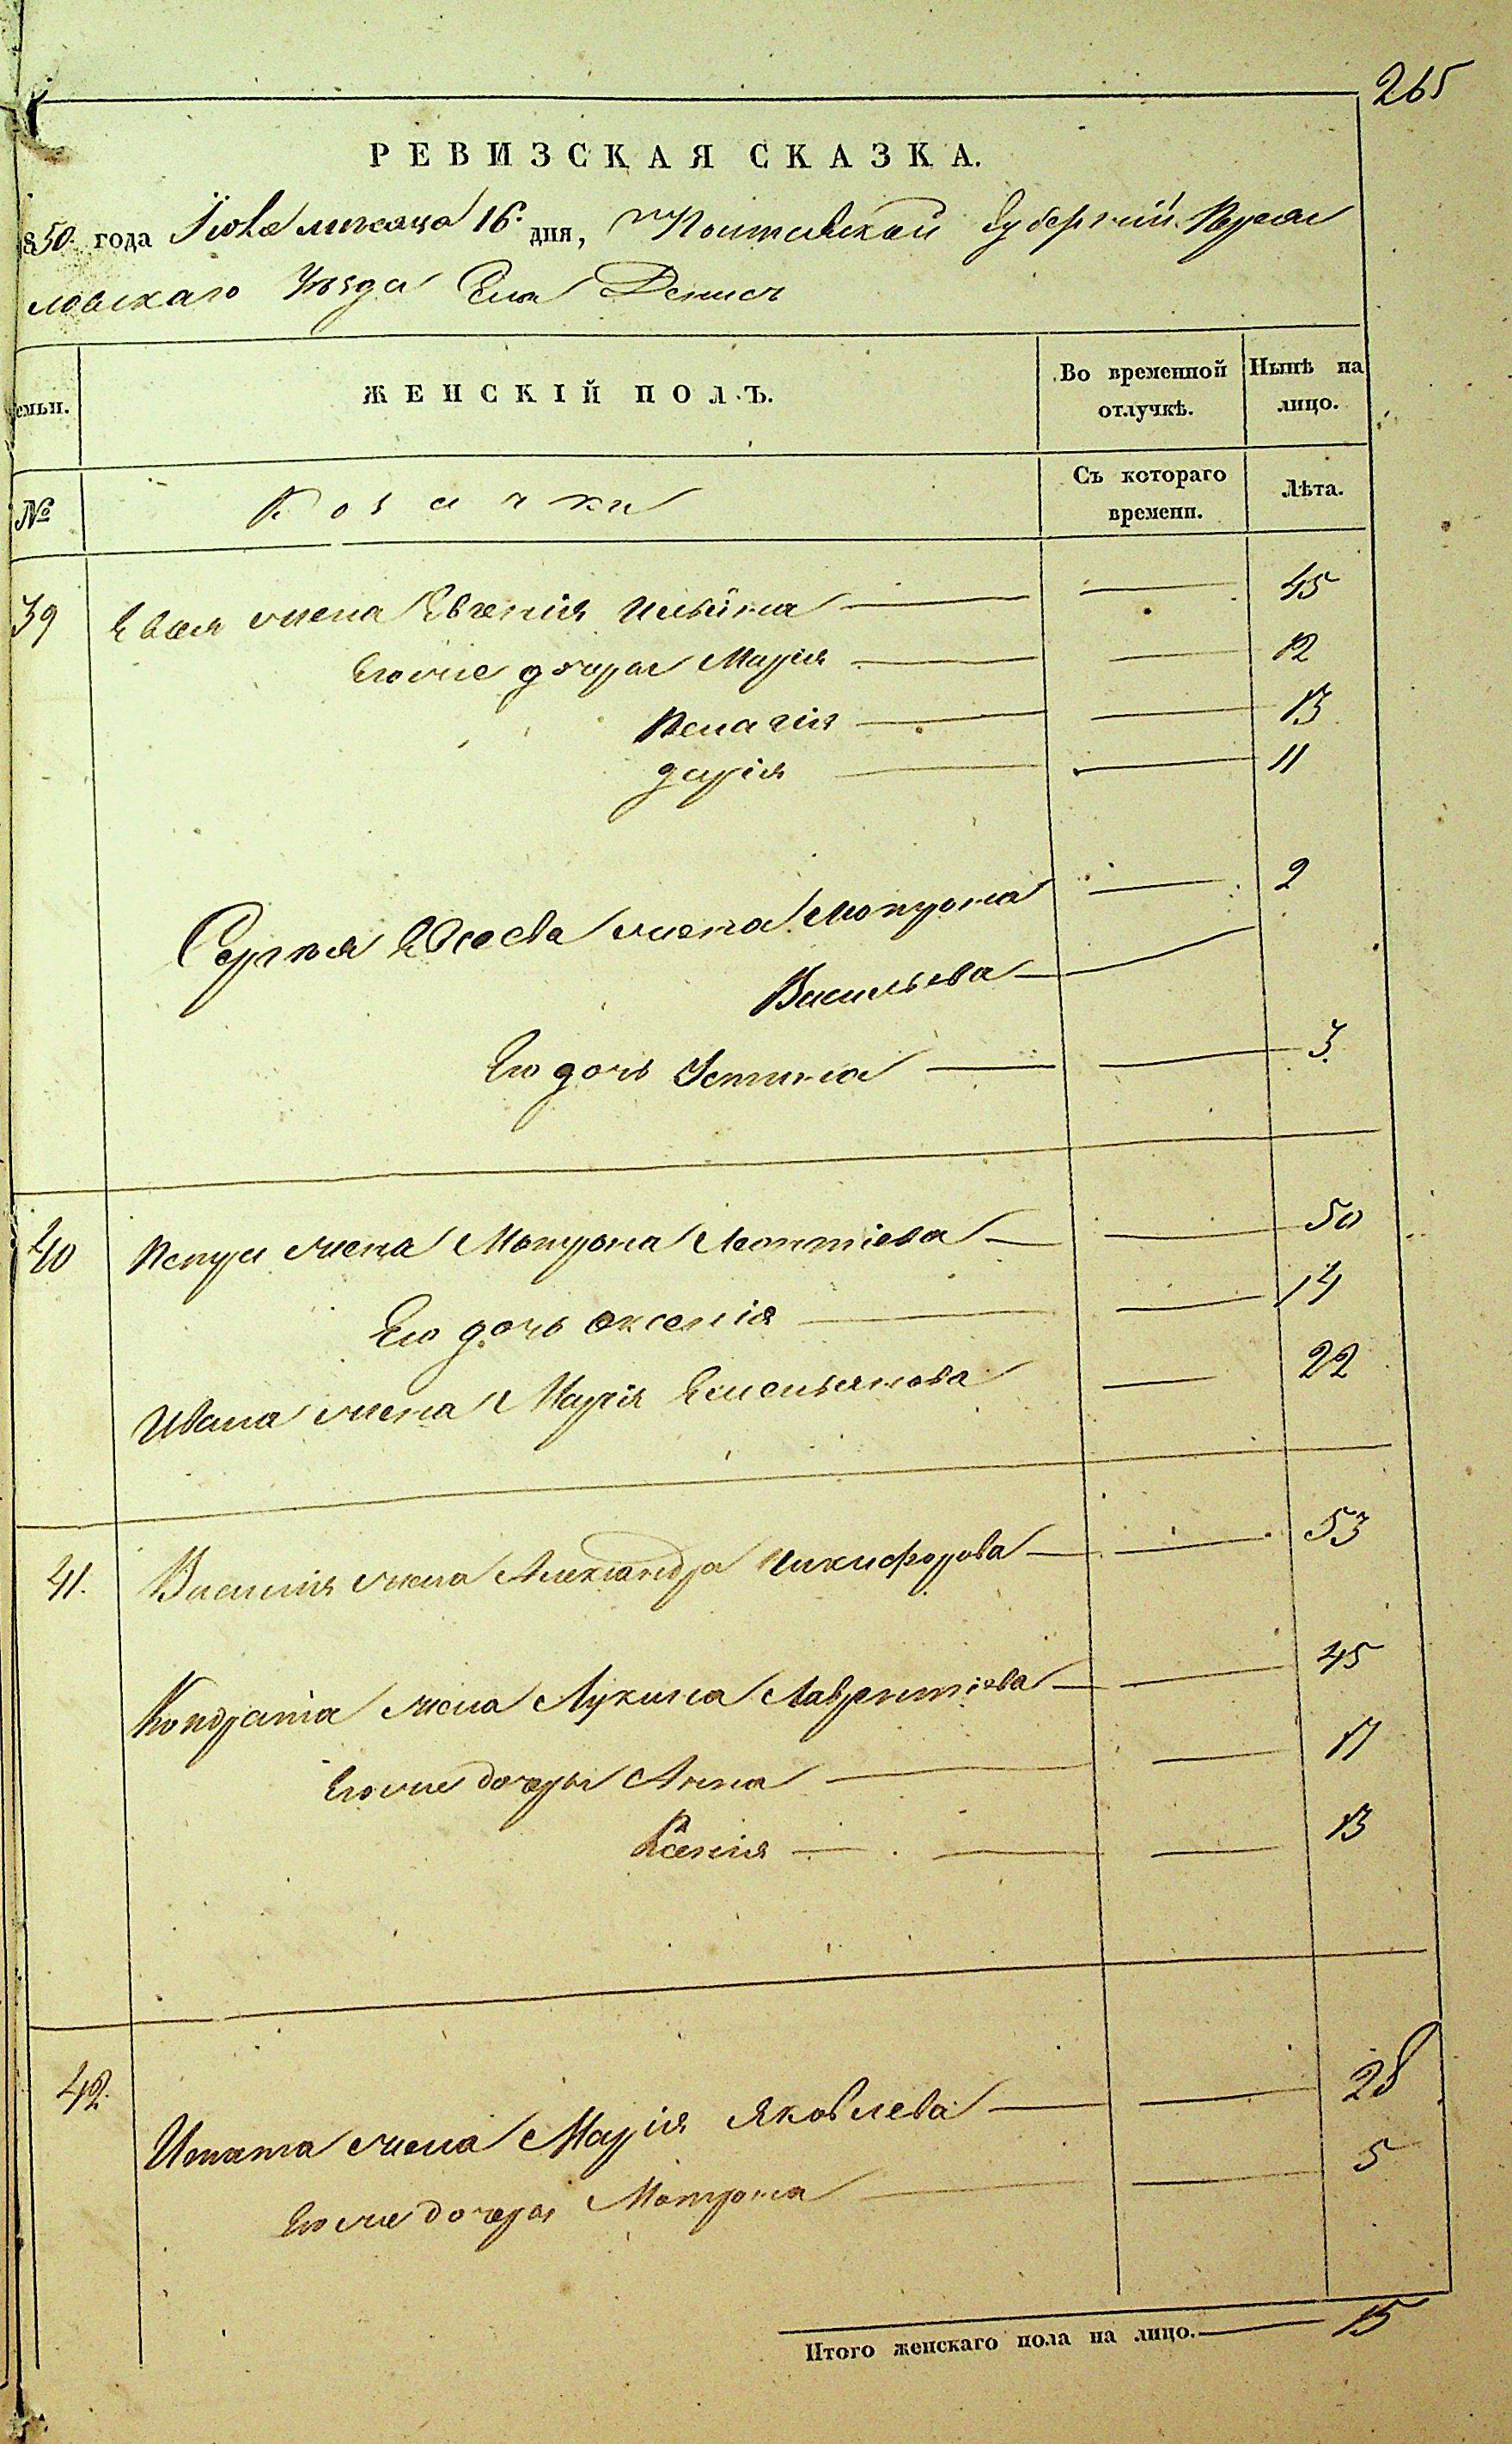 265
РЕВИЗСКАЯ СКАЗКА.
850 года месяца 16. дня, Полтавской Губерніи Переяс
ловскаго Уѣзда Села Денисъ
емьи.
ЖЕНСКІЙ ПОЛЪ.
Во временной отлучкѣ.
Нынѣ на лицо.
№
Козачки
Съ котораго времени.
Лѣта.
39 жена Евгенія Ильина — — 45
Его же дочери Марія — — 12
Пелагія — — 13
дарія — — 11
Сергѣя жена Мотрона — 2
Васильева —
Его дочь Устина — — 3.
40 Петра жена Мотрона Леонтіева — — 50
Его дочь Оксенія — — 14
Ивана жена Марія Емельянова — 22
41. Василія жена Александра Никифорова — — 53
Кондратія жена Лукина Лаврентіева — — 45
Его же дочери Анна — — 17
Ксенія — — — 13
42. Игната жена Марія Яковлева — — 28
Его же дочери Мотрона — — 5
Итого женскаго пола на лицо. — 15